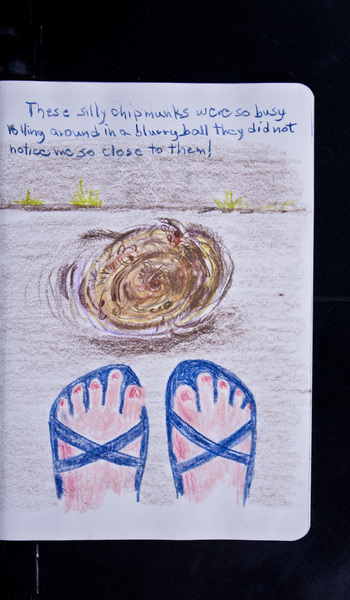 These silly chipmunks were so busy
rolling around in a blurry ball they did not
notice me so close to them!